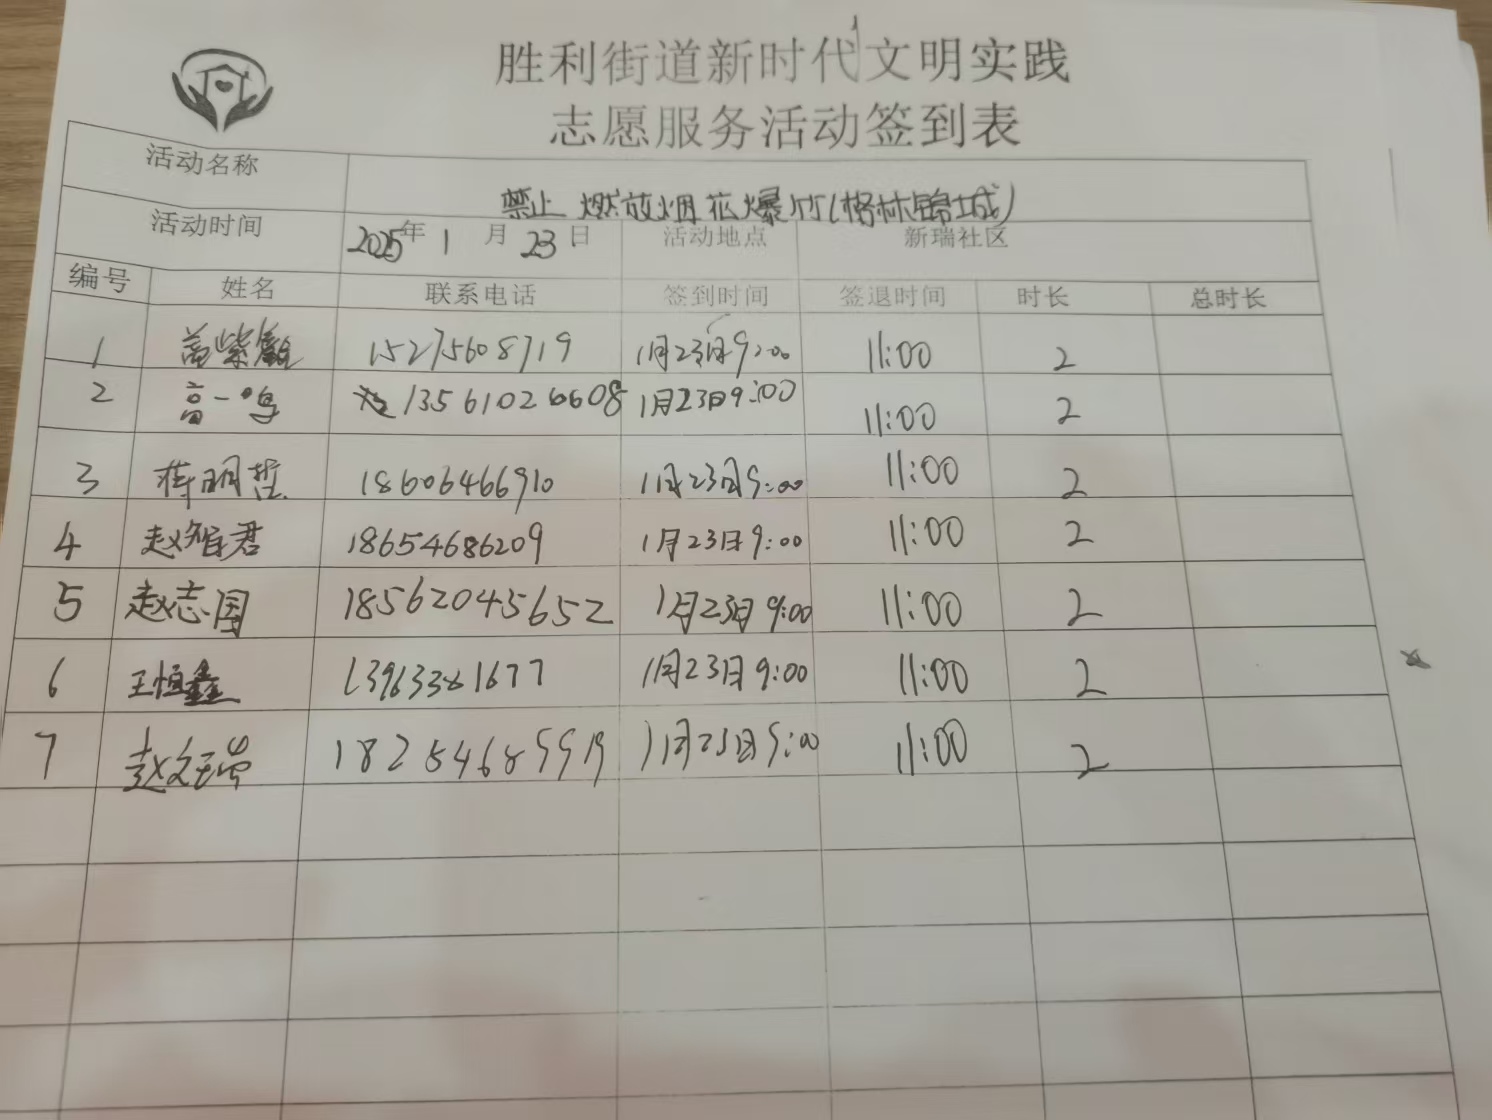 胜利街道新时代文明实践
志愿服务活动签到表
活动名称 禁止燃放烟花爆竹(格林锦城)
活动时间 2025年 1 月 23 日 活动地点 新瑞社区
编号 姓名 联系电话 签到时间 签退时间 时长 总时长
1 高紫 15275608719 1月23日9:00 11:00 2
2 高一鸣 13561026608 1月23日9:00 11:00 2
3 蒋明哲 18606466910 1月23日9:00 11:00 2
4 赵智君 18654686209 1月23日9:00 11:00 2
5 赵志国 18562045652 1月23日9:00 11:00 2
6 王恒鑫 13963381677 1月23日9:00 11:00 2
7 赵 1月23日9:00 11:00 2